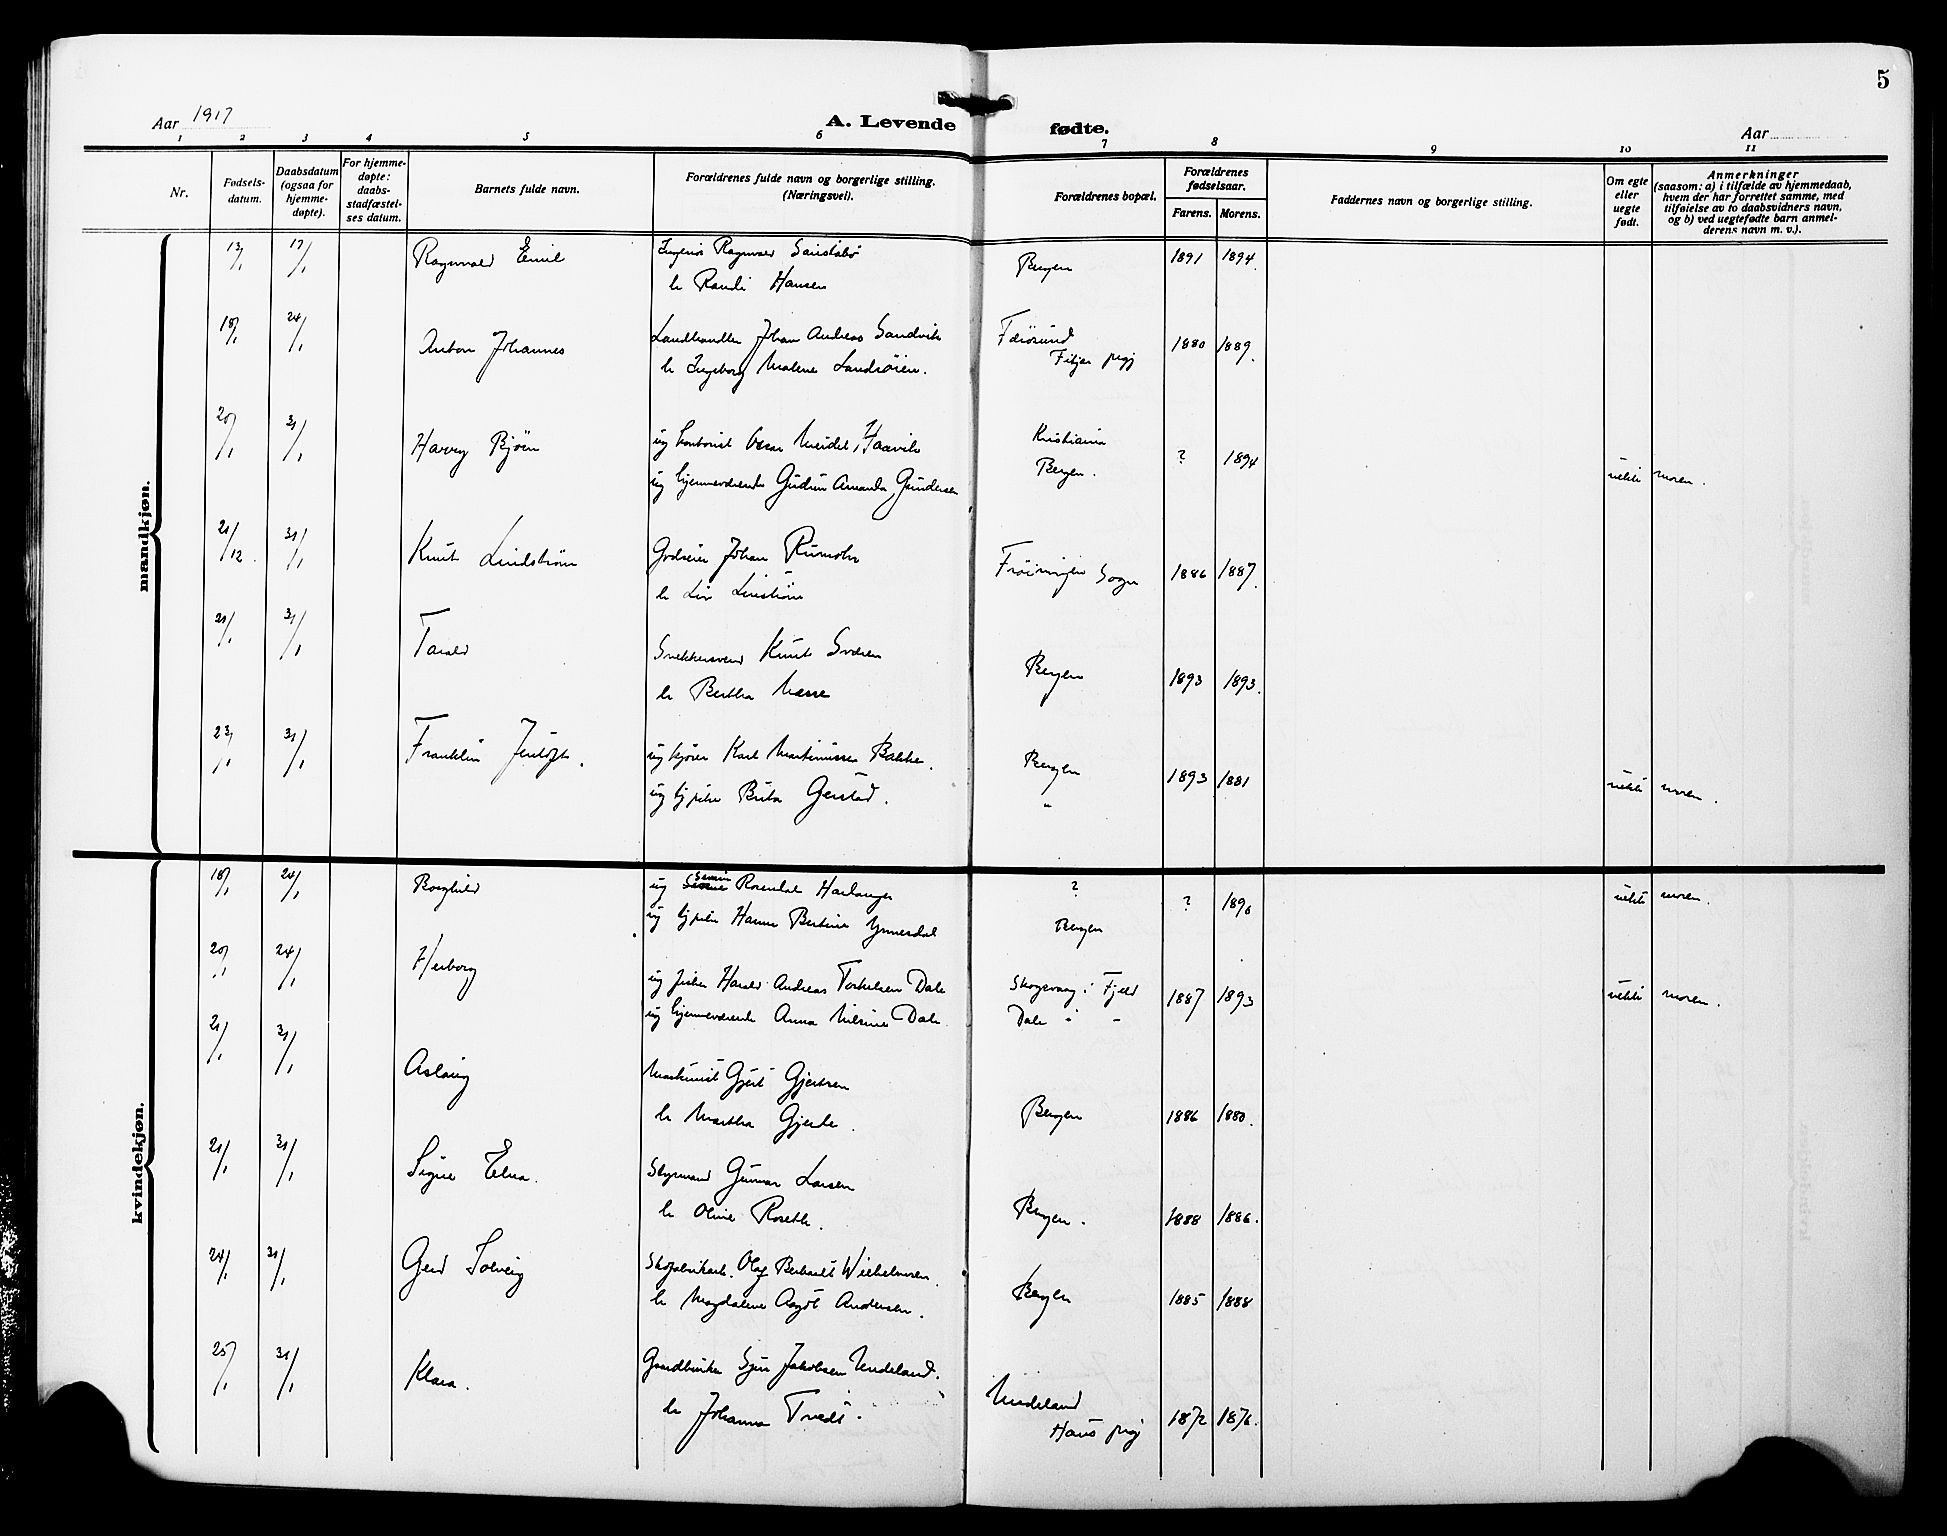 5
Aar 1917
A. Levende fødte.
Aar
1 2 3 4 5 6 7 8 9 10 11
Nr.
Fødsels-
datum.
Daabsdatum
(ogsaa for
hjemme-
døpte).
For hjemme-
døpte:
daabs-
stadfæstel-
ses datum.
Barnets fulde navn.
Forældrenes fulde navn og borgerlige stilling.
(Næringsvei).
Forældrenes bopæl.
Forældrenes
fødselsaar.
Farens. Morens.
Faddernes navn og borgerlige stilling.
Om egte
eller
uegte
født.
Anmerkninger
(saasom: a) i tilfælde av hjemmedaab,
hvem der har forrettet samme, med
tilføielse av to daabsvidners navn,
og b) ved uegtefødte barn anmel-
derens navn m. v.).
mandkjøn.
13/1 17/1 Ragnvald Emil Ragnvald Bergen 1891 1894.
h. Randi Hansen
18/1 24/1 Anton Johannes Landhandler Johan Andreas Sandvik 1880 1889.
h. Ingeborg Malene Landsøien. Fitjar prgj
20/1 31/1 Harry Bjørn ug kontorist Haavik Kristiania ? 1894
ug hjemmeværende Gudrun Amanda Gundersen Bergen. uekte moren.
21/12. 31/1 Knut Lindstrøm Godseier Johan Rumohr Frøiningen Sogn 1886 1887.
h. Liv Linstrøm
21/1 31/1 Tarald Snekkersvend Knut Bergen 1893 1893.
h. Bertha Næsse
23/1 31/1 Franklin ug kjører Karl Martinussen Bakke. Bergen 1893 1881
ug tjpike Brita Gjerstad. " uekte moren.
kvindekjøn.
18/1 24/1 Borghild ug Rosendal ? ? 1890 uekte moren.
ug tjpike Hanna Bertine Ynnesdal Bergen
20/1 24/1 Herborg ug fisker Harald Andreas Torkelsen Dale Skogsvaag i Fjeld 1887 1893 uekte moren.
ug hjemmeværende Anna Nilsine Dale Dale " "
21/1 31/1 Aslaug Maskinist Gjert Gjertsen
h. Martha Gjerde. Bergen 1886 1880.
21/1 31/1 Signe Elna. Styrmand Gunnar Larsen
h. Oline Roseth. Bergen. 1888 1886.
24/1 31/1 Gerd Solveig Skofabrikarb. Olaf Berhardt Wilhelmsen.
h. Magdalene Aagot Andersen. Bergen 1885 1888
25/1 31/1 Klara. Gaardbruker Sjur Jakobsen Undeland.
h. Johanna Tvedt. Undeland
Haus prgj 1872 1876.